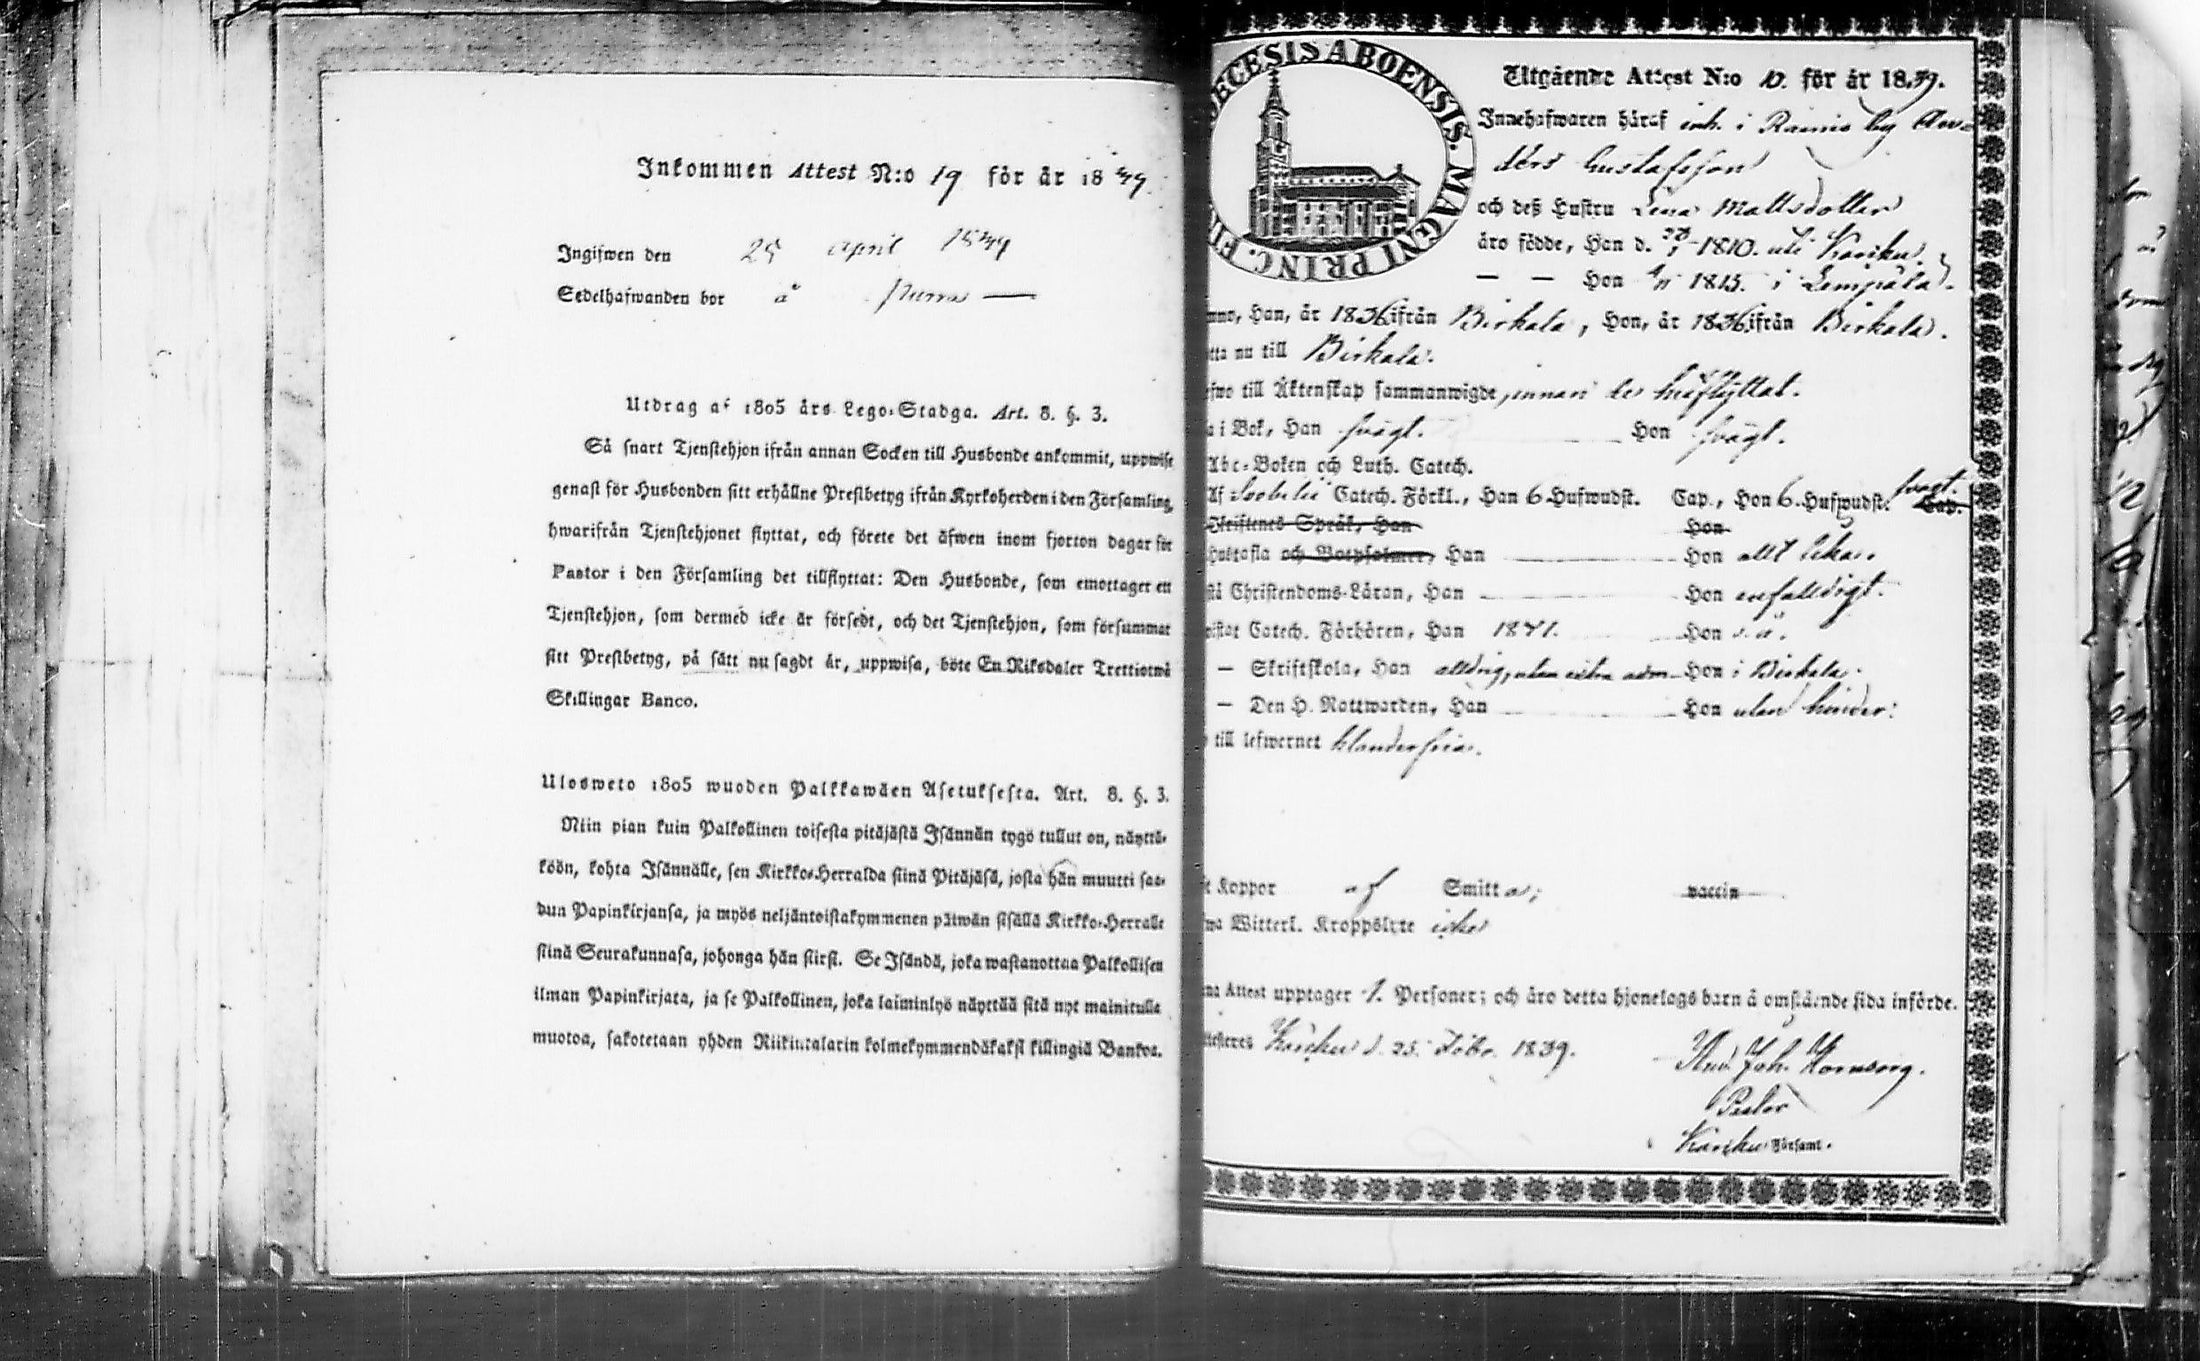 Inkommen Attest N:o 19 för år 1849
Ingifwen den 25 april 1849
Sedelhafwanden bor å
Utdrag af 1805 års Lego-Stadga. Art. 8. §. 3.
Så snart Tjenstehjon ifrån annan Socken till Husbonde ankommit, uppwise
genast för Husbonden sitt erhållne Prestbetyg ifrån Kyrkoherden i den Församling,
hwarifrån Tjenstehjonet flyttat, och förete det äfwen inom fjorton dagar för
Pastor i den Församling det tillflyttat: Den Husbonde, som emottager en
Tjenstehjon, som dermed icke är försedt, och det Tjenstehjon, som försummar
sitt Prestbetyg, på sätt nu sagdt är, uppwisa, böte En Riksdaler Trettiotwå
Skillingar Banco.
Ulosweto 1805 wuoden Palkkawäen Asetuksesta. Art. 8. §. 3.
Niin pian kuin Palkollinen toisesta pitäjästä Isännän tygö tullut on, näyttä-
köön, kohta Isännälle, sen Kirkko-Herralda siinä Pitäjäsä, josta hän muutti saa-
dun Papinkirjansa, ja myös neljäntoistakymmenen päiwän sisällä Kirkko-Herralle
siinä Seurakunnasa, johonga hän siirsi. Se Isändä, joka wastanottaa Palkollisen
ilman Papinkirjata, ja se Palkollinen, joka laiminlyö näyttää sitä nyt mainitulle
muotoa, sakotetaan yhden Riikintalarin kolmekymmendäkaksi killingiä Bankos.
ECESIS ABOENSIS. MAGNI PRINC. FI
Utgående Attest N:o 10. för år 1839.
Innehafwaren häraf inh. i Rainio by An-
ders Gustafsson
och dess Hustru Lena Mattsdotter
äro födde, Han d. 1810. uti Karku.
— — Hon 1815. i Lempäla.
nno, Han, år 1836 ifrån Birkala, Hon, år 1836 ifrån Birkala.
tta nu till Birkala.
efwo till Äktenskap sammanwigde, innan de hitflyttat.
a i Bok, Han swagt. Hon swagt.
Abc-Boken och Luth. Catech.
Af Catech. Förkl., Han 6 Hufwudst. Cap., Hon 6. Hufwudst. swagt. Cap.
Skriftenes Språk, Han Hon
Hustafla och Botpsalmer, Han Hon allt lika.
stå Christendoms-Läran, Han Hon enfaldigt.
wistat Catech. Förhören, Han 1841. Hon s. å.
— Skriftskola, Han aldrig, utan extra adm Hon i Birkala.
— Den H. Nattwarden, Han Hon utan hinder.
till lefwernet klanderfria.
t Koppor af Smitta; vaccin
wa Witterl. Kroppslyte icke
na Attest upptager 1. Personer; och äro detta hjonelags barn å omstående sida införde.
ttesteres Karku d. 25. 1839.
Joh. Hornborg.
Pastor
Karku Församl.